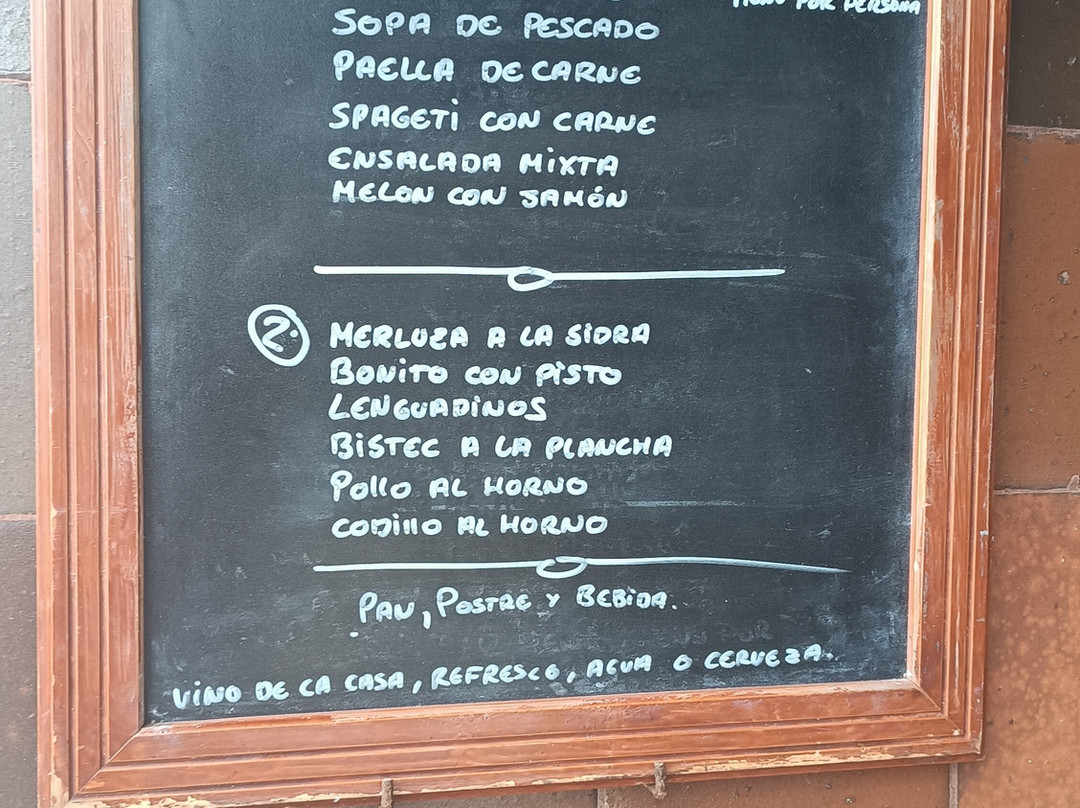 MENÚ POR PERSONA
SOPA DE PESCADO
PAELLA DE CARNE
SPAGETi CON CARNE
ENSALADA MiXTA
MELON CON JAMÓN
2º
MERLUZA A LA SiDRA
BONiTO CON PiSTO
LENGUADiNOS
BiSTEC A LA PLANCHA
POllO AL HORNO
CODillO AL HORNO
PAN, POSTRE Y BEBiDA.
ViNO DE LA CASA, REFRESCO, AGUA O CERVEZA.